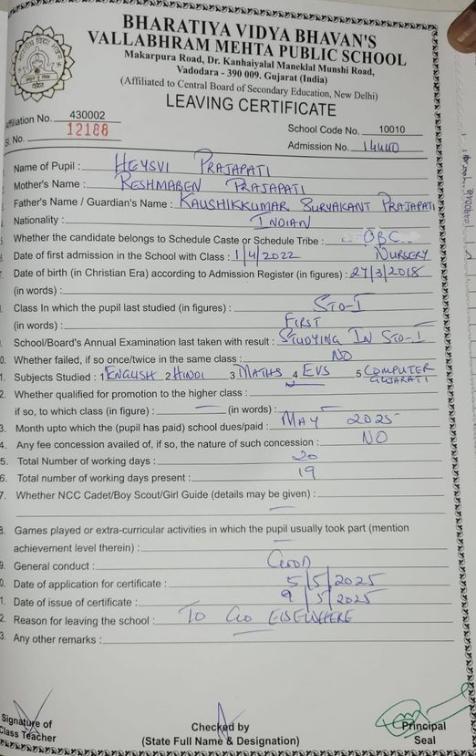 BHARATIYA VIDYA BHAVAN'S
VALLABHRAM MEHTA PUBLIC SCHOOL
Makarpura Road, Dr. Kanhaiyalal Maneklal Munshi Road,
Vadodara - 390 009. Gujarat (India)
(Affiliated to Central Board of Secondary Education, New Delhi)
LEAVING CERTIFICATE
ffiliation No. 430002
School Code No. 10010
l. No. 12188
Admission No. 14440
Name of Pupil : HEYSVI PRAJAPATI
Mother's Name : RESHMABEN PRAJAPATI
Father's Name / Guardian's Name : KAUSHIKKUMAR SURYAKANT PRAJAPATI
Nationality : INDIAN
Whether the candidate belongs to Schedule Caste or Schedule Tribe : OBC
Date of first admission in the School with Class : 1/4/2022 NURSERY
Date of birth (in Christian Era) according to Admission Register (in figures) : 27/3/2018
(in words) :
Class In which the pupil last studied (in figures) : STD-I
(in words) : FIRST
School/Board's Annual Examination last taken with result : STUDYING IN STD-I
0. Whether failed, if so once/twice in the same class : NO
1. Subjects Studied : 1 ENGLISH 2 HINDI 3 MATHS 4 EVS 5 COMPUTER
GUJARATI
2. Whether qualified for promotion to the higher class :
if so, to which class (in figure) : — (in words) : —
3. Month upto which the (pupil has paid) school dues/paid : MAY 2025
4. Any fee concession availed of, if so, the nature of such concession : NO
5. Total Number of working days : 20
6. Total number of working days present : 19
7. Whether NCC Cadet/Boy Scout/Girl Guide (details may be given) :
—
8. Games played or extra-curricular activities in which the pupil usually took part (mention
achievement level therein) : —
9. General conduct : GOOD
0. Date of application for certificate : 5/5/2025
1. Date of issue of certificate : 9/5/2025
2. Reason for leaving the school : TO GO ELSEWHERE
3. Any other remarks : —
Signature of
Class Teacher
Checked by
(State Full Name & Designation)
Principal
Seal